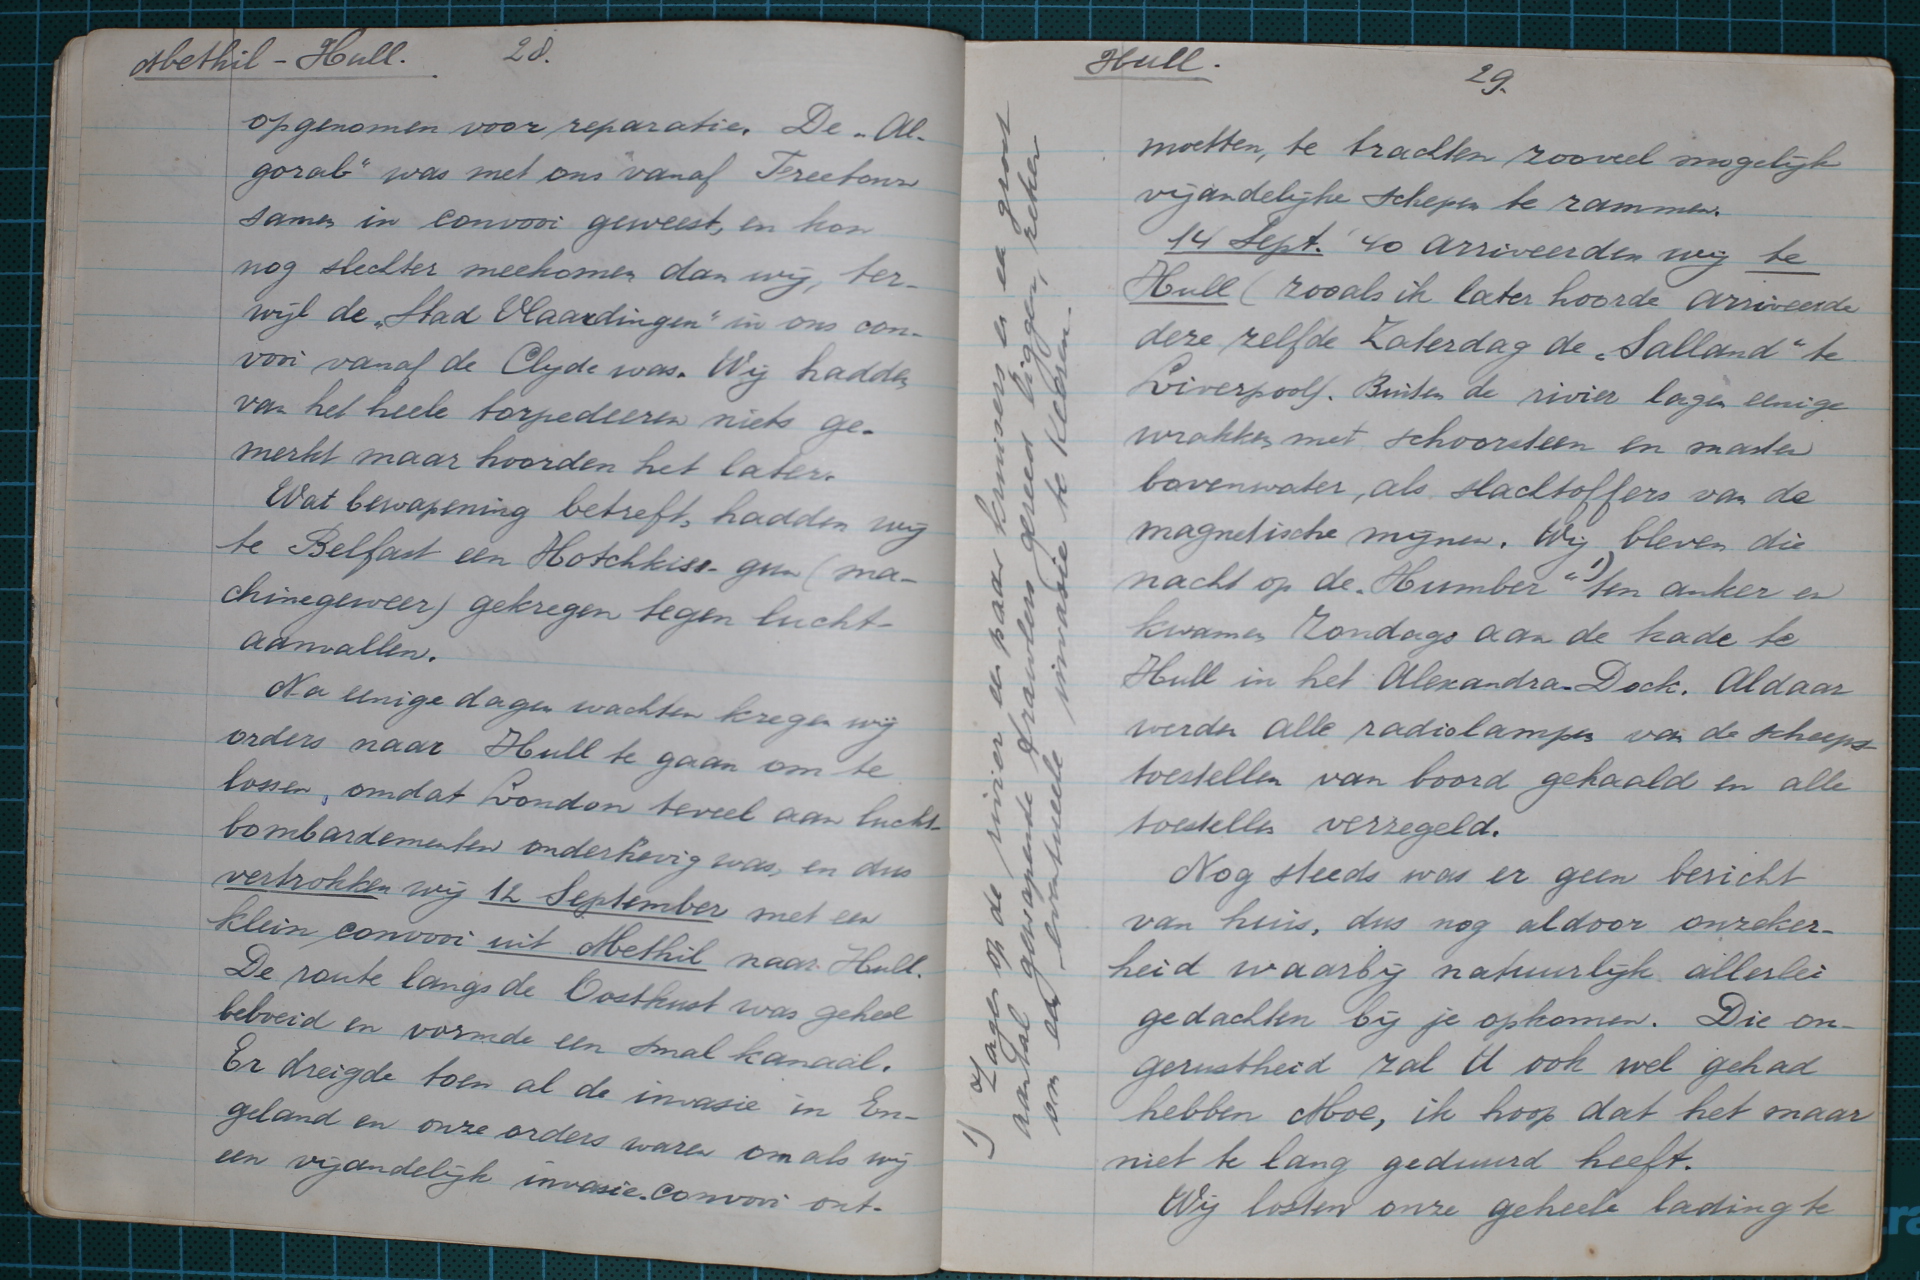 Methil - Hull. 28.
opgenomen voor reparatie. De „Al-
gorab" was met ons vanaf Freetown
samen in convooi geweest, en kon
nog slechter meekomen dan wij, ter-
wijl de „Stad Vlaardingen" in ons con-
vooi vanaf de Clyde was. Wij hadden
van het heele torpedeeren niets ge-
merkt maar hoorden het later.
Wat bewapening betreft, hadden wij
te Belfast een Hotchkiss-gun (ma-
chinegeweer) gekregen tegen lucht-
aanvallen.
Na eenige dagen wachten kregen wij
orders naar Hull te gaan om te
lossen, omdat London teveel aan lucht-
bombardementen onderhevig was, en dus
vertrokken wij 12 September met een
klein convooi uit Methil naar Hull.
De route langs de Oostkust was geheel
beboeid en vormde een smal kanaal.
Er dreigde toen al de invasie in En-
geland en onze orders waren om als wij
een vijandelijk invasie-convooi ont-
Hull. 29.
moetten, te trachten zooveel mogelijk
vijandelijke schepen te rammen.
14 Sept. '40 arriveerden wij te
Hull (zooals ik later hoorde arriveerde
deze zelfde Zaterdag de „Salland" te
Liverpool). Buiten de rivier lagen eenige
wrakken met schoorsteen en masten
bovenwater, als slachtoffers van de
magnetische mijnen. Wij bleven die
nacht op de „Humber" 1) ten anker en
kwamen Zondags aan de kade te
Hull in het Alexandra-Dock. Aldaar
werden alle radiolampen van de scheeps-
toestellen van boord gehaald en alle
toestellen verzegeld.
Nog steeds was er geen bericht
van huis, dus nog aldoor onzeker-
heid waarbij natuurlijk allerlei
gedachten bij je opkomen. Die on-
gerustheid zal U ook wel gehad
hebben Moe, ik hoop dat het maar
niet te lang geduurd heeft.
Wij losten onze geheele lading te
1) Lagen op de rivier een paar kruisers en een groot
aantal gewapende trawlers gereed liggen, zeker
om een eventueele invasie te keeren.